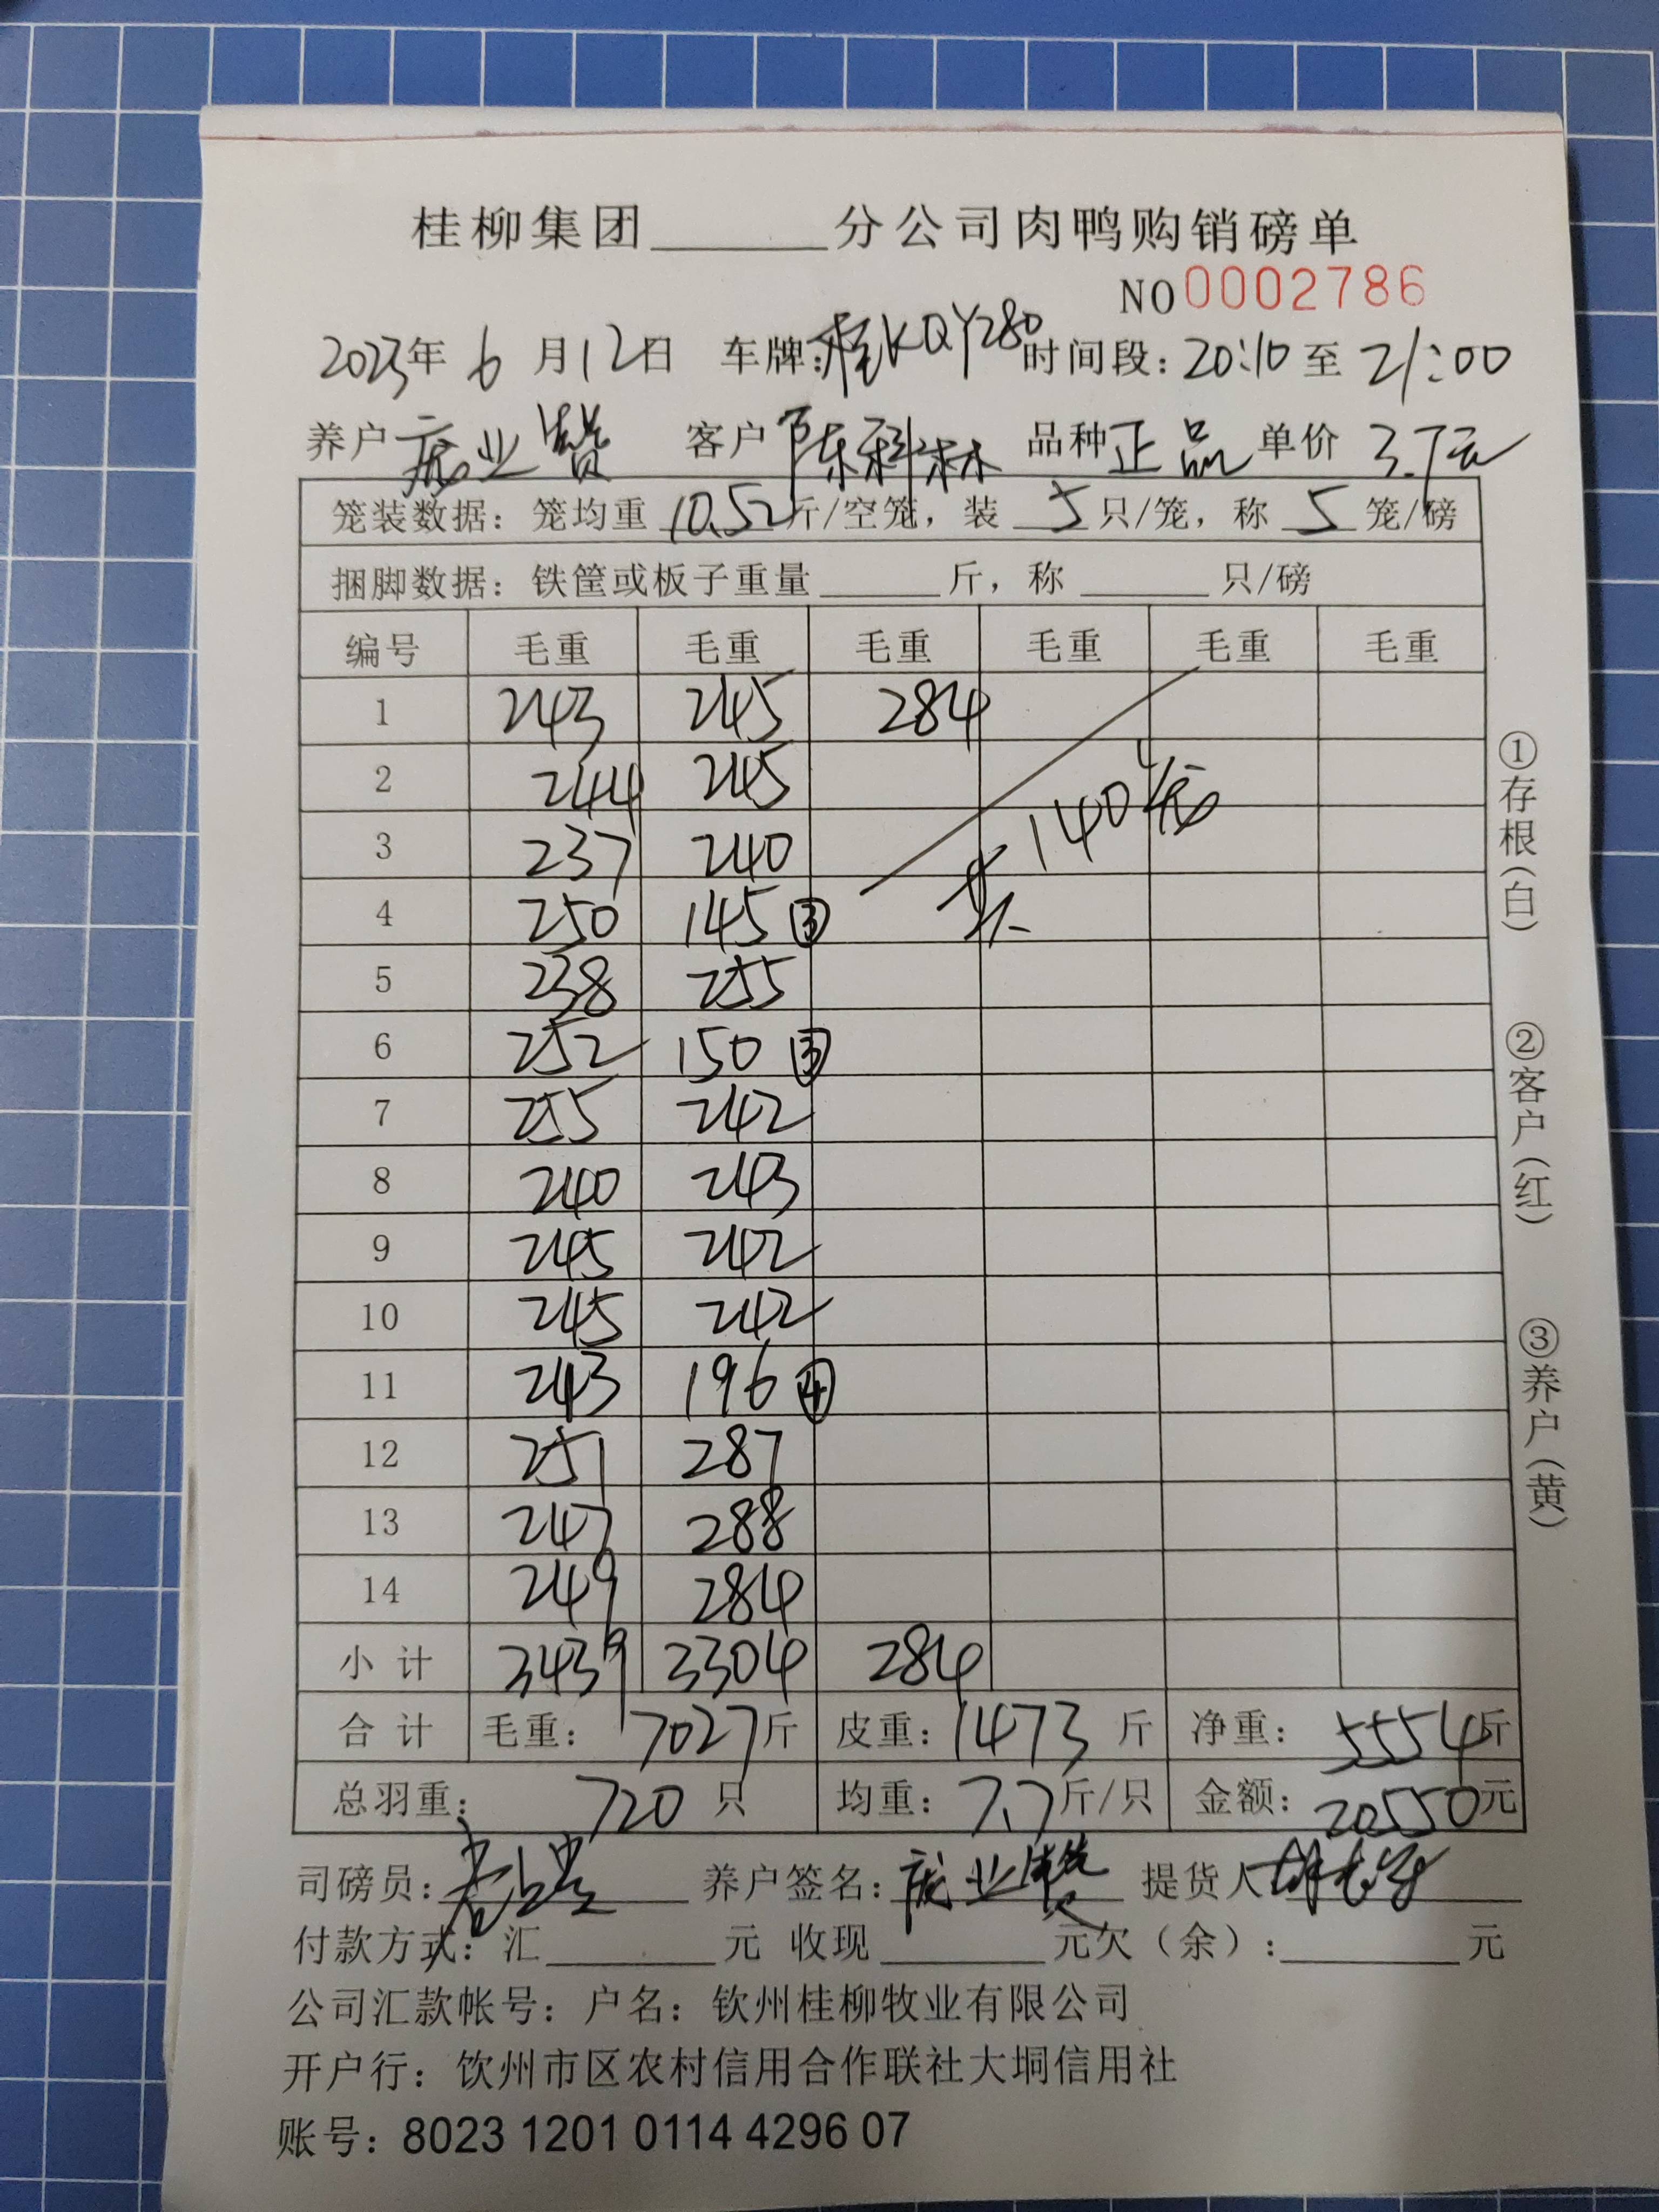 桂柳集团______分公司肉鸭购销磅单
NO 0002786
2023年 6 月 12日 车牌：桂KQY280 时间段：20:10 至 21:00
养户 庞业赞 客户 陈科林 品种 正品 单价 3.7元
笼装数据：笼均重 10.52 斤/空笼，装 5 只/笼，称 5 笼/磅
捆脚数据：铁筐或板子重量______斤，称______只/磅
编号 毛重 毛重 毛重 毛重 毛重 毛重
1 243 245 284
2 244 245
3 237 240 共140笼
4 250 145 ③
5 238 255
6 252 150 ③
7 255 242
8 240 243
9 245 242
10 245 242
11 243 196 ④
12 251 287
13 247 288
14 249 284
小计 3439 3304 284
合计 毛重：7027斤 皮重：1473 斤 净重：5554斤
总羽重：720 只 均重：7.7斤/只 金额：20550元
司磅员： 养户签名：庞业赞 提货人
付款方式：汇______元 收现______元欠（余）：______元
公司汇款帐号：户名：钦州桂柳牧业有限公司
开户行：钦州市区农村信用合作联社大垌信用社
账号：8023 1201 0114 4296 07
①存根（白）
②客户（红）
③养户（黄）